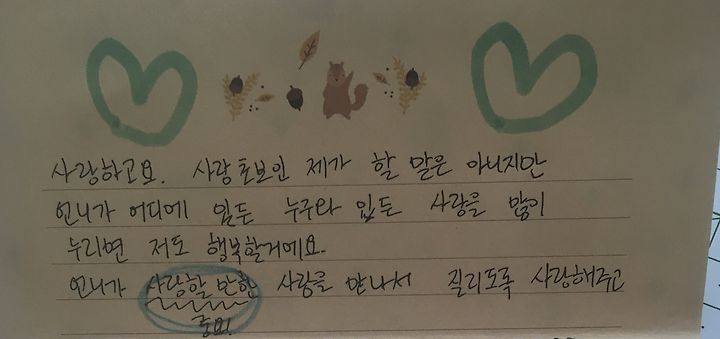 사랑하고요. 사랑 초보인 제가 할 말은 아니지만
언니가 어디에 있든 누구와 있든 사랑을 많이
누리면 저도 행복할거에요.
언니가 사랑할 만한 사랑을 만나서 질리도록 사랑해주고
중요!